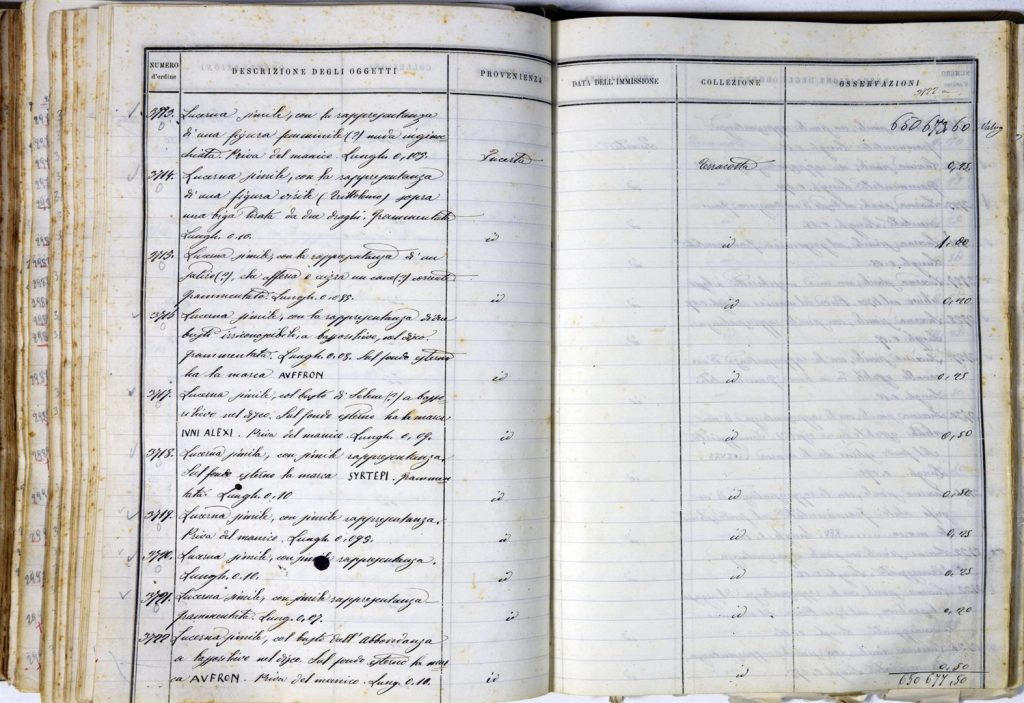 NUMERO d'ordine DESCRIZIONE DEGLI OGGETTI PROVENIENZA DATA DELL'IMMISSIONE COLLEZIONE OSSERVAZIONI
3122
650 673,60
3713. Lucerna simile, con la rappresentanza
di una figura femminile (?) nuda inginoc
chiata. Priva del manico. Lungh. 0,105. Lucerta Terracotta 0,25
3714. Lucerna simile, con la rappresentanza
di una figura virile (Trittolemo) sopra
una biga tirata da due draghi. Frammentata
Lungh. 0.10. id id 1,00
3715. Lucerna simile, con la rappresentanza di un
satiro (?), che afferra o aizza un cane (?) corrente
Frammentata. Lungh. 0.085. id id 0,20
3716. Lucerna simile, con la rappresentanza di due
busti irriconoscibili, a bassorilievo, nel disco.
Frammentata. Lungh. 0.08. Sul fondo esterno
ha la marca AVFFRON id id 0,25
3717. Lucerna simile, col busto di Selene (?) a basso
rilievo nel disco. Sul fondo esterno ha la marca
IVNI ALEXI. Priva del manico. Lungh. 0,09. id id 0,50
3718. Lucerna simile, con simile rappresentanza.
Sul fondo esterno la marca SYRTEPI. Frammen
tata. Lungh. 0.10 id id 0,50
3719. Lucerna simile, con simile rappresentanza.
Priva del manico. Lungh. 0,095. id id 0,25
3720. Lucerna simile, con simile rappresentanza.
Lungh. 0.10. id id 0,25
3721. Lucerna simile, con simile rappresentanza
frammentata. Lung. 0,07. id id 0,20
3722 Lucerna simile, col busto dell'Abbondanza
a bassorilievo nel disco. Sul fondo esterno la mar
ca AVFRON. Priva del manico. Lungh. 0.10. id id 0,50
650 677,50